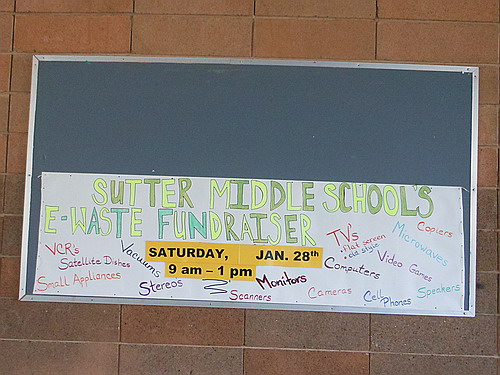 SUTTER MIDDLE SCHOOL'S
E-WASTE FUNDRAISER
SATURDAY, JAN. 28th
9 am – 1 pm
VCR's
Satellite Dishes
Small Appliances
Vacuums
Stereos
Scanners
Monitors
TV's
• flat screen
• old style
Computers
Cameras
Copiers
Microwaves
Video Games
Cell Phones
Speakers